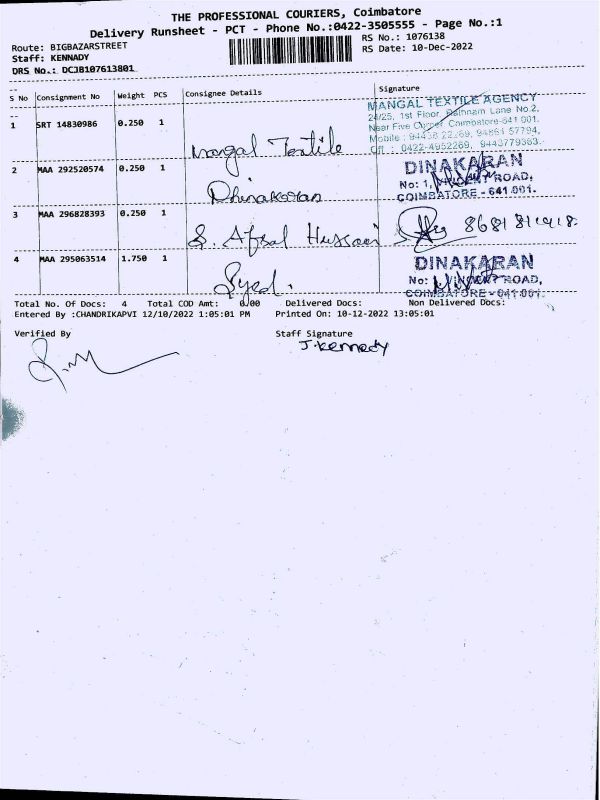 THE PROFESSIONAL COURIERS, Coimbatore
Delivery Runsheet - PCT - Phone No.:0422-3505555 - Page No.:1
Route: BIGBAZARSTREET
Staff: KENNADY
DRS No.: DCJB107613801
RS No.: 1076138
RS Date: 10-Dec-2022
S No Consignment No Weight PCS Consignee Details Signature
MANGAL TEXTILE AGENCY
24/25, 1st Floor, Rathnam Lane No.2,
Near Five Corner Coimbatore-641 001.
Mobile : 94438 22269, 94861 57794,
Off : 0422-4952269, 9443779363.
1 SRT 14830986 0.250 1
Mangal Textile
2 MAA 292520574 0.250 1
DINAKARAN
No: 1, ROAD,
COIMBATORE - 641 001.
Dhinakaran
3 MAA 296828393 0.250 1
S. Afsal Hussain
4 MAA 295063514 1.750 1
DINAKARAN
No: ROAD,
COIMBATORE - 641 001.
Syed.
Total No. Of Docs: 4 Total COD Amt: 0.00 Delivered Docs: Non Delivered Docs:
Entered By :CHANDRIKAPVI 12/10/2022 1:05:01 PM Printed On: 10-12-2022 13:05:01
Verified By Staff Signature
J.Kennedy